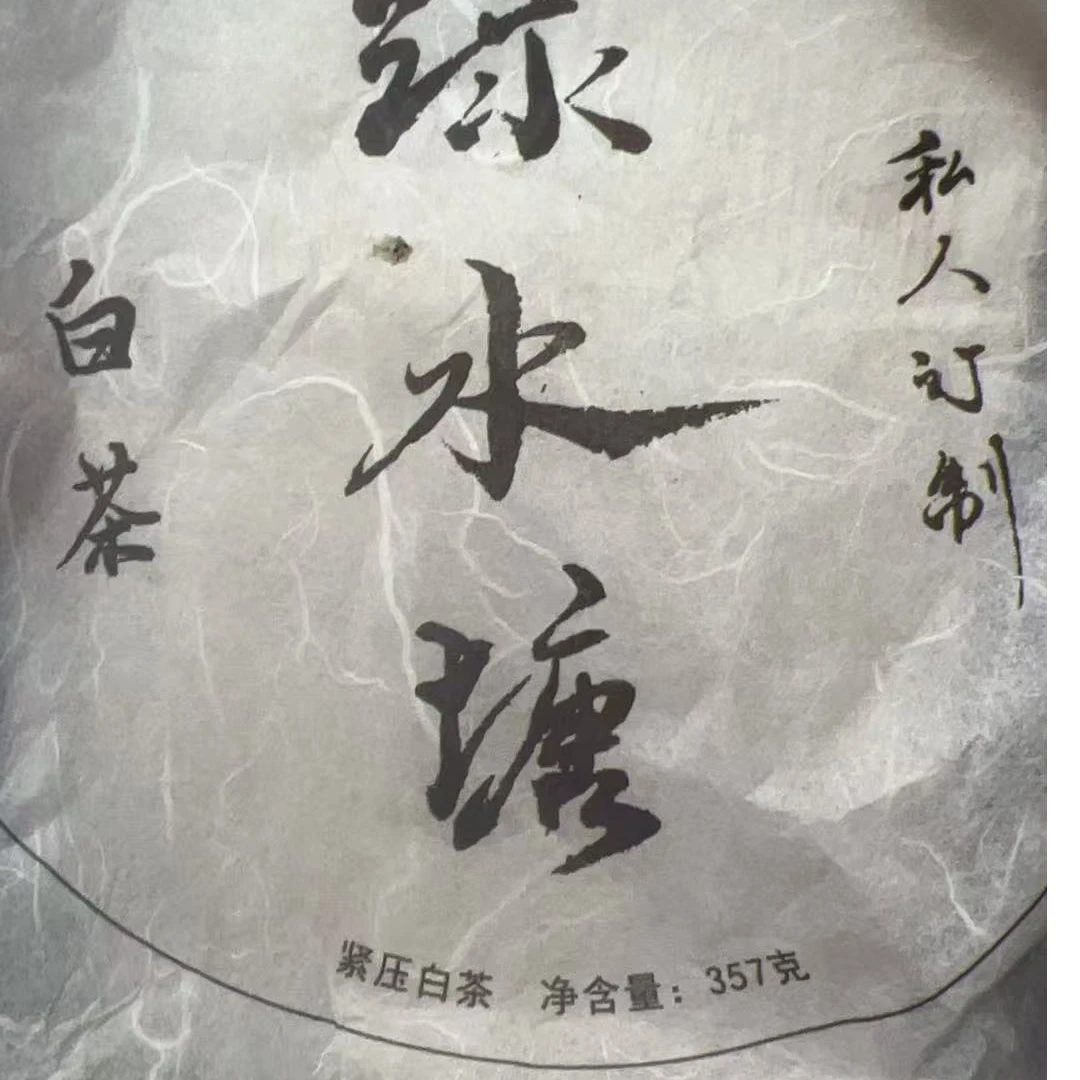 绿水塘
私人订制
白茶
紧压白茶 净含量：357克